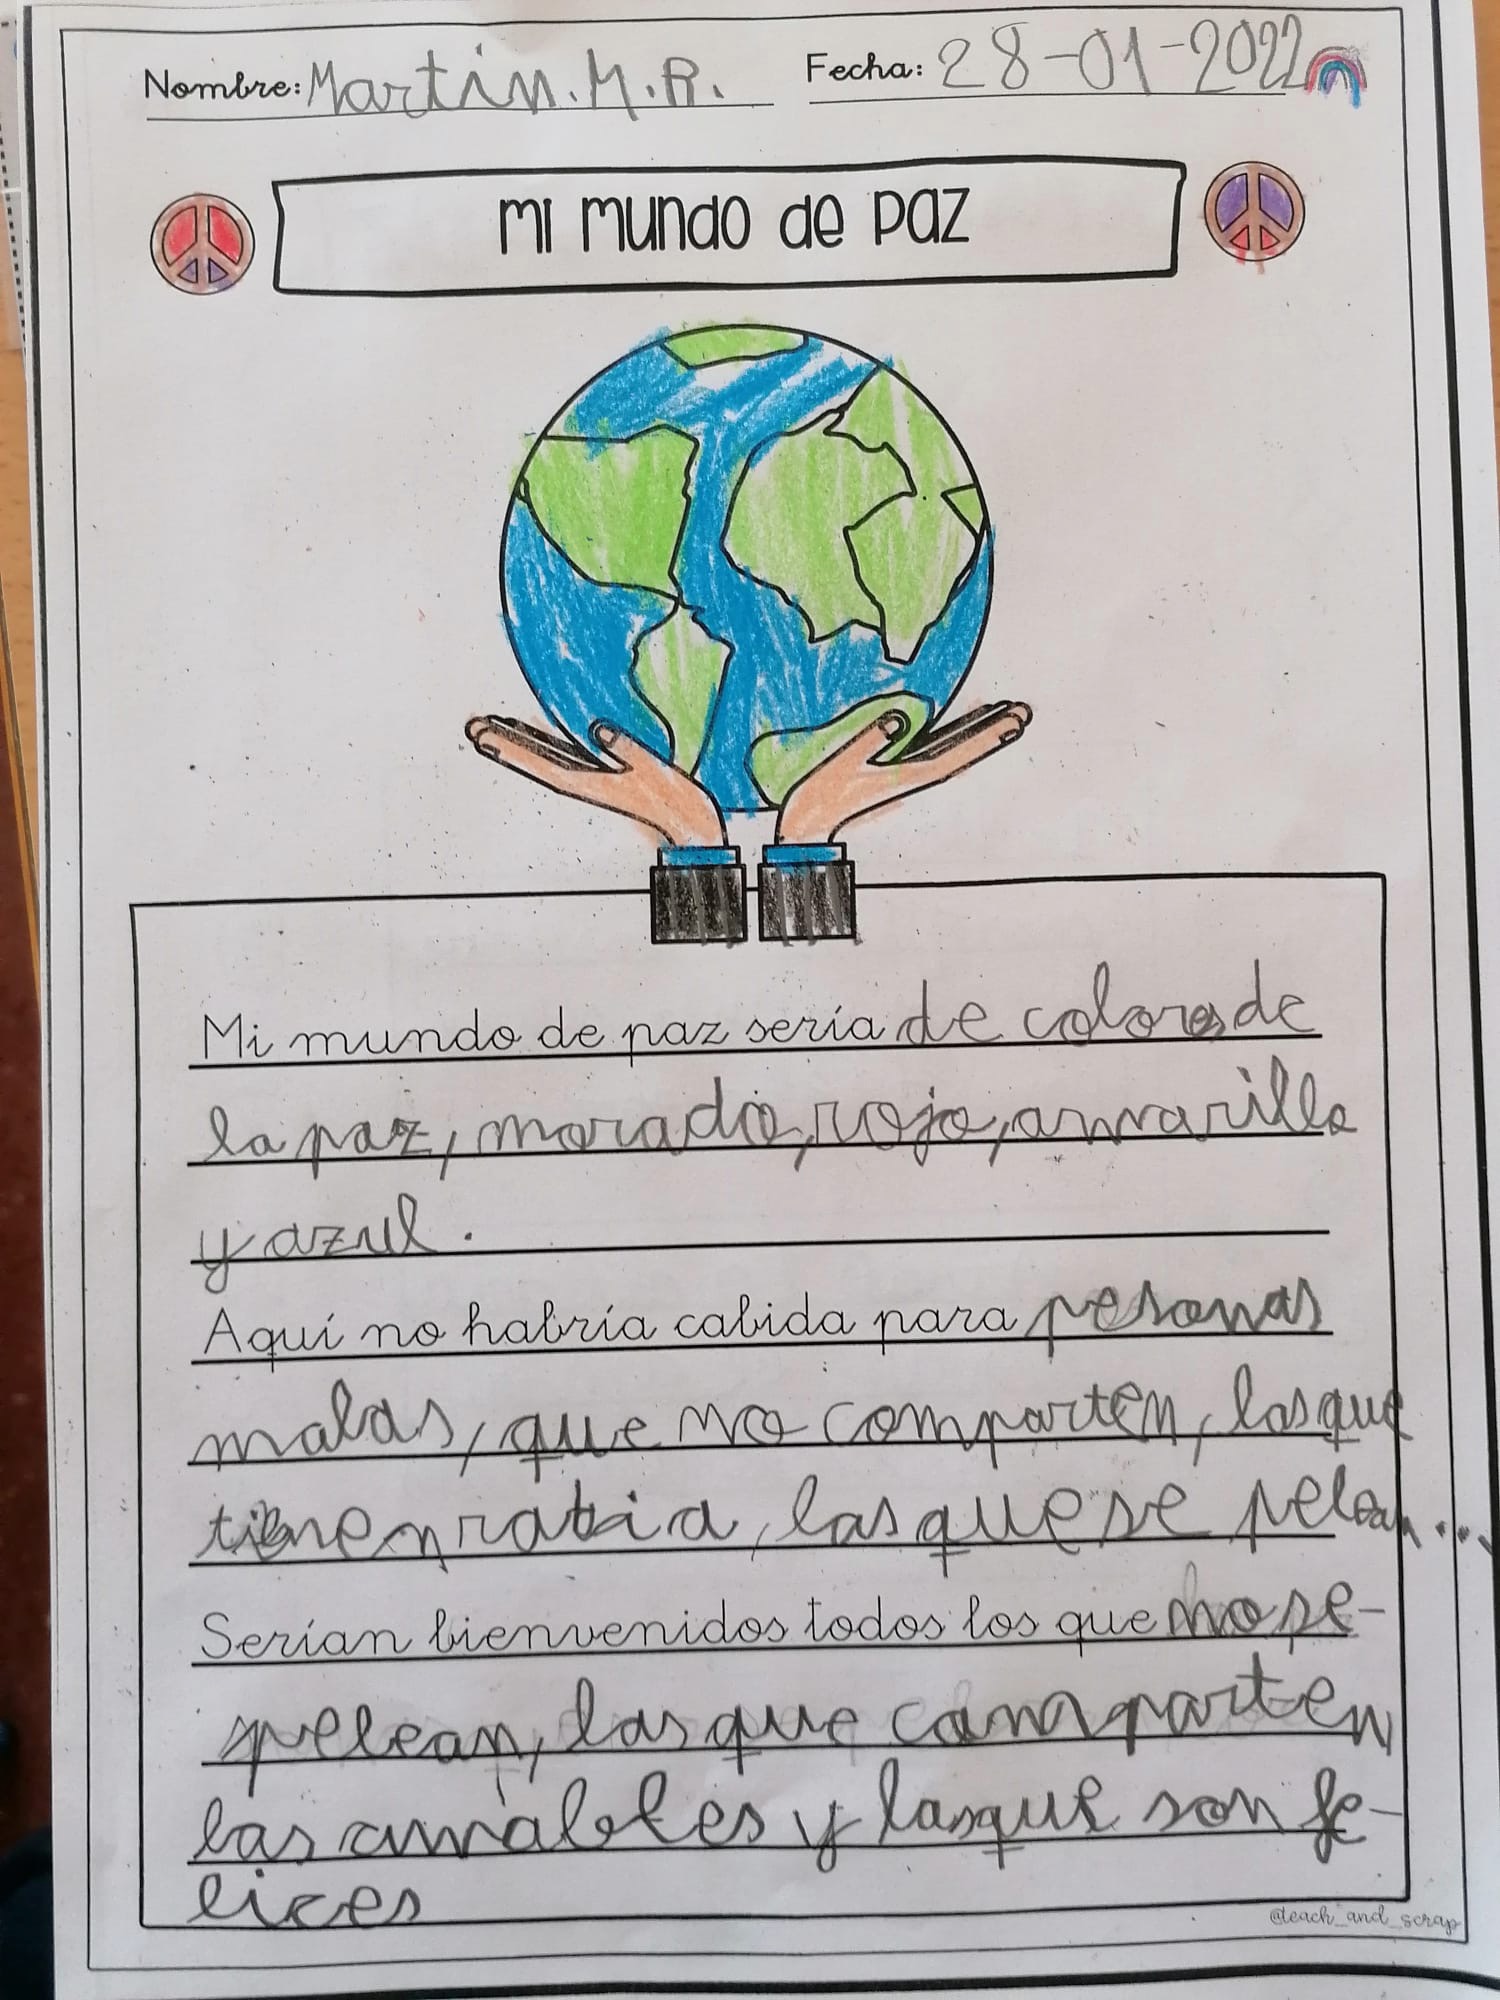 Nombre: Martín. M. R. Fecha: 28-01-2022
mi mundo de paz
Mi mundo de paz sería de colores de
la paz, morado, rojo, amarillo
y azul.
Aquí no habría cabida para pesonas
malas, que no comparten, las que
tienen rabia, las que se pelean...
Serían bienvenidos todos los que no se-
pelean, las que comparten
las amables y las que son fe-
lices
@teach_and_scrap